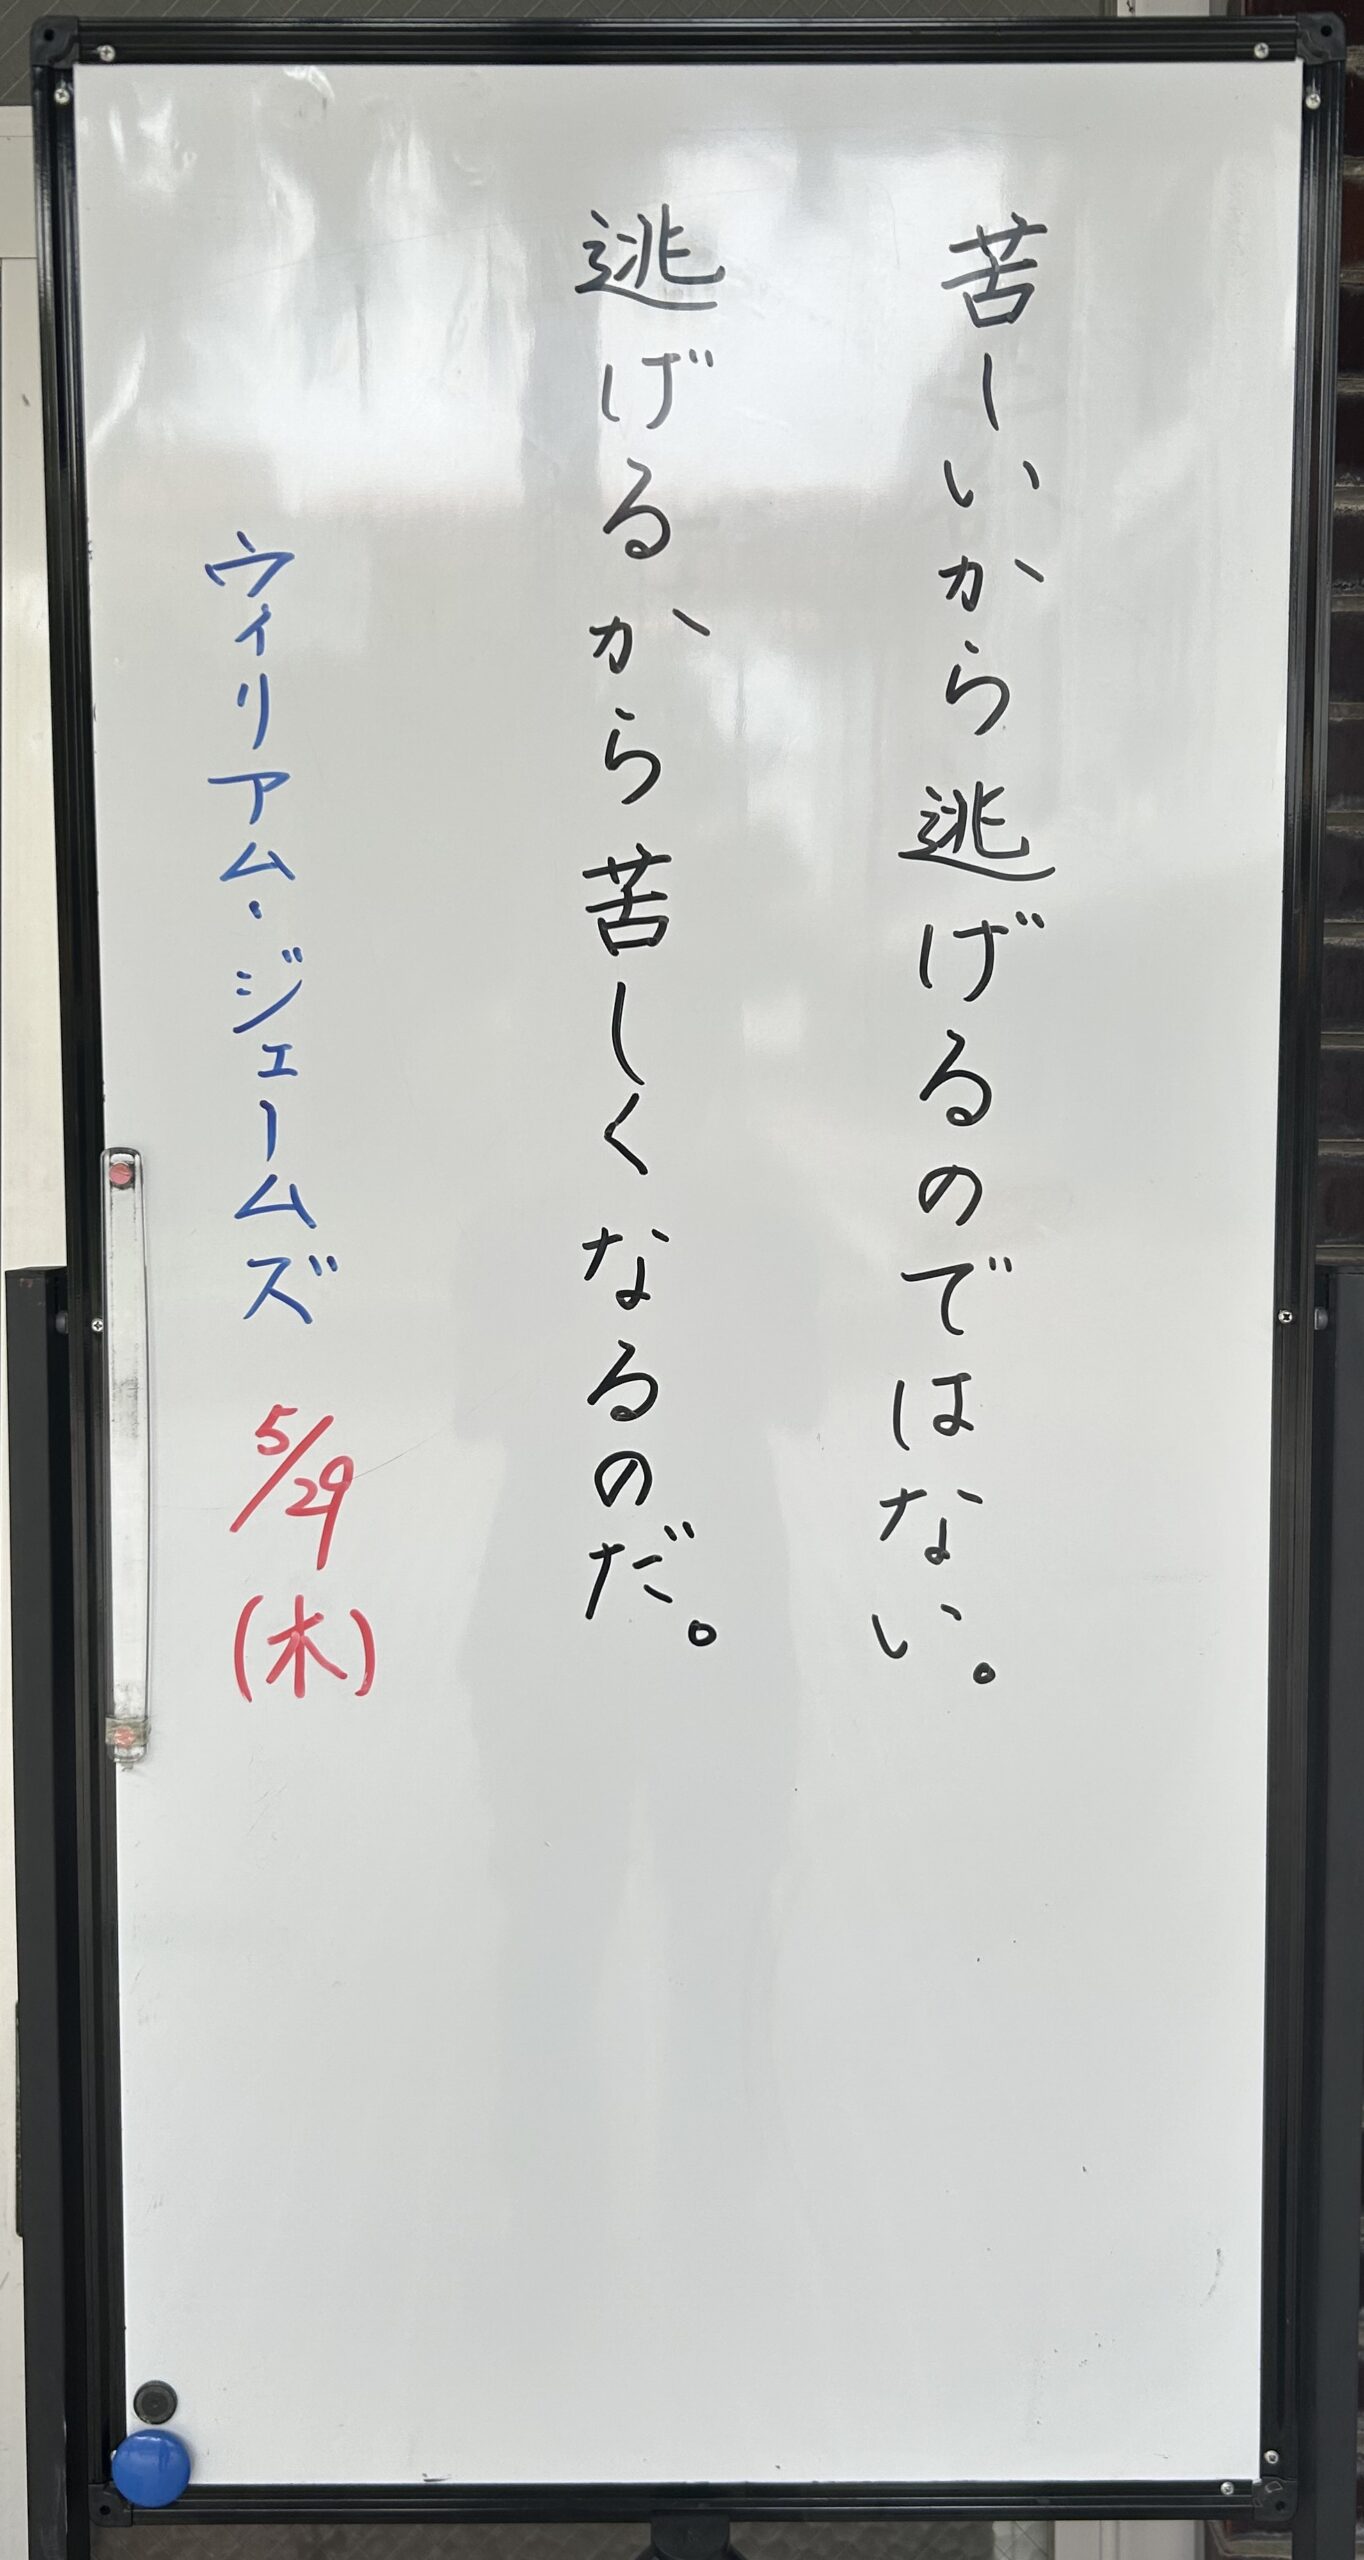 苦しいから逃げるのではない。
逃げるから苦しくなるのだ。
ウィリアム・ジェームズ 5/29(木)